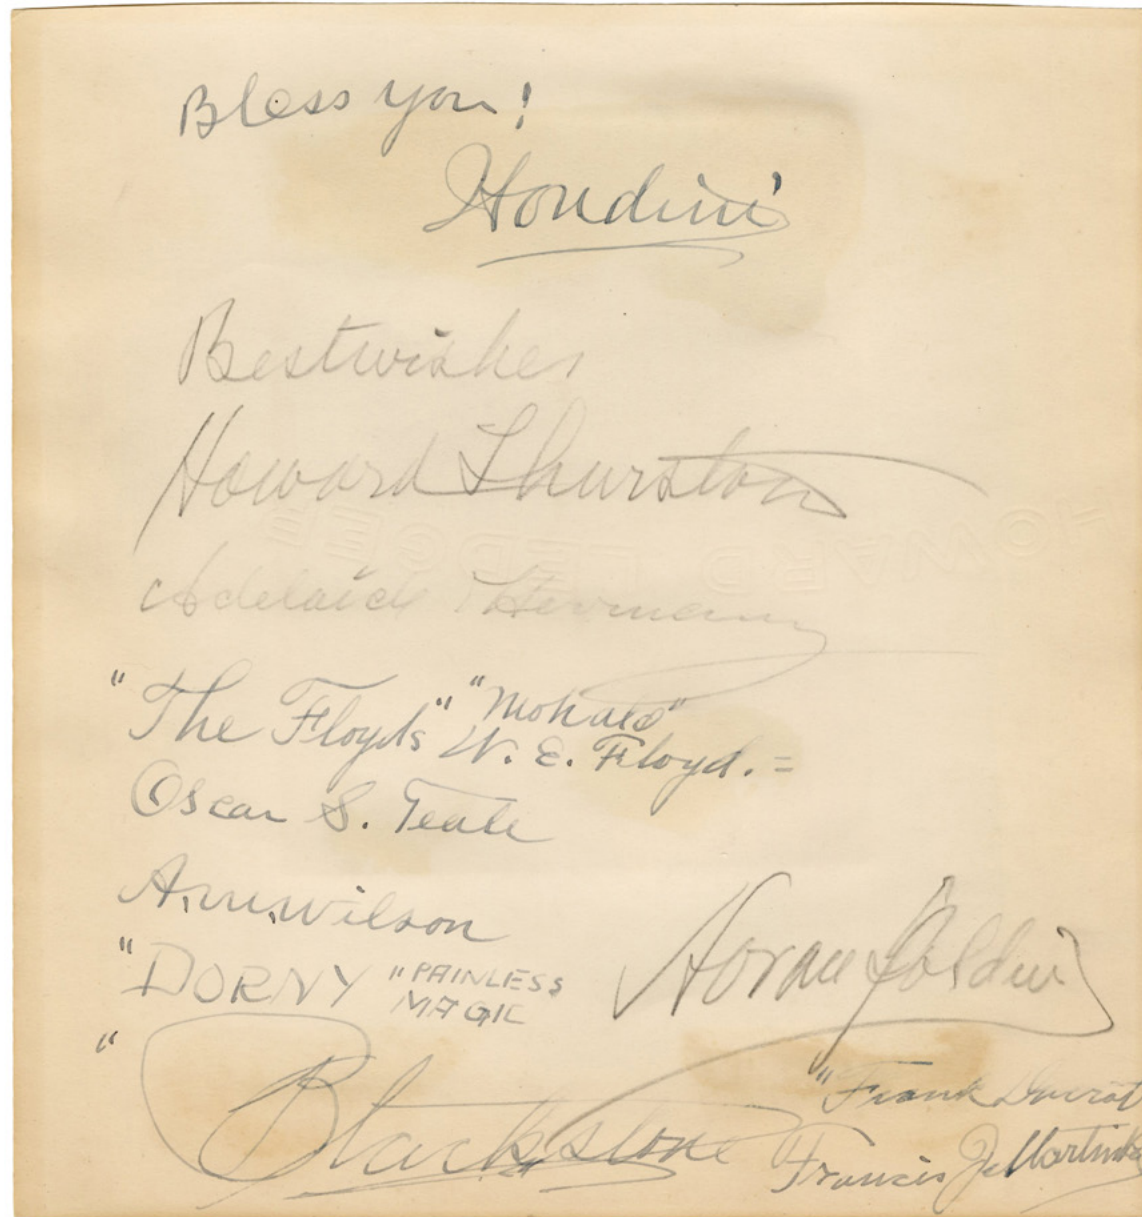 Bless you!
Houdini
Best wishes
Howard Thurston
Adelaide Herrmann
"The Floyds" "Mohala"
W. E. Floyd. =
Oscar S. Teale
A. M. Wilson
"DORNY "PAINLESS
MAGIC
Horace Goldin
"Blackstone
"Frank Ducrot
Francis J. Martinka
HOWARD LEDGER